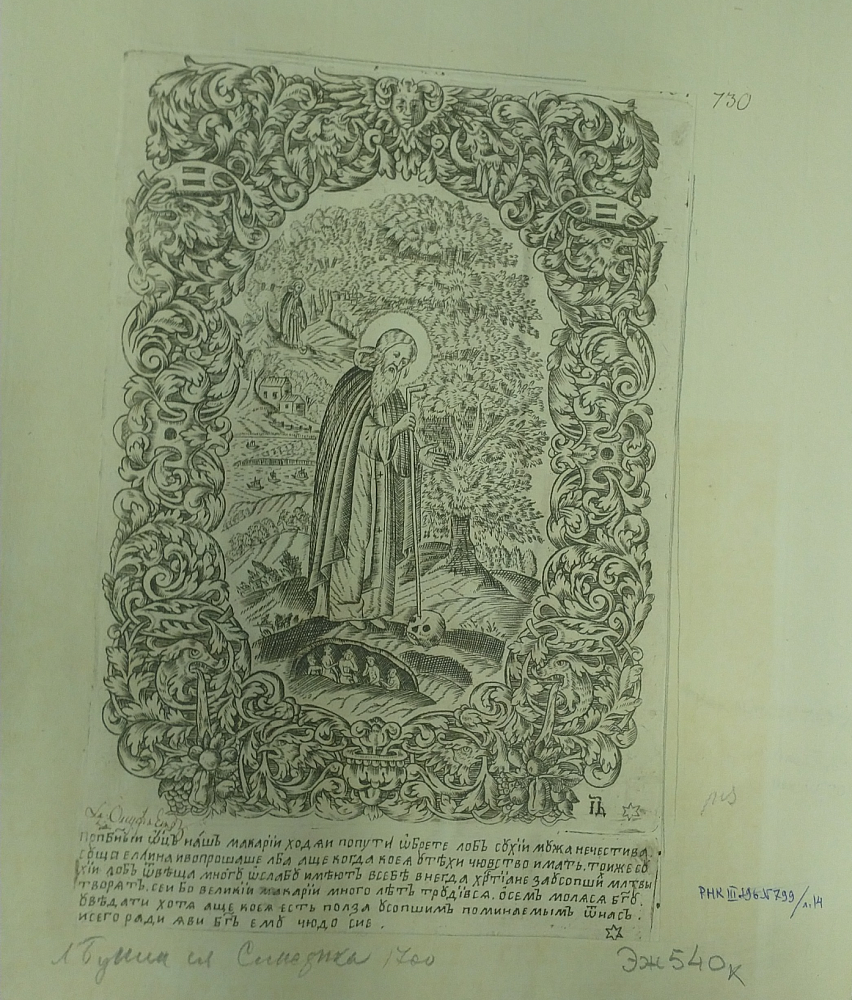 730
П
П
П҃д
Прпⷣбныи ѿц҃ъ на́шъ макарїй ходѧи попути ѡбрете лобъ сꙋхїй мꙋжа нечестива.
сꙋща еллина ивопрошаше лба аще когда коеѧ ѹтѣхи чювство имать. тоиже сꙋ
хїй лобъ ѿвѣща многѹ ѡслабꙋ имѣютъ всебѣ внегда хрⷭ҇тїане заꙋсопшїѧ мл҃твы
творѧтъ. сеи бо великїй макарїй много лѣтъ трꙋдївсѧ. ѡсемъ молѧсѧ бг҃ꙋ.
ꙋвѣдати хотѧ аще коеѧ есть ползa ꙋсопшимъ поминаемымъ ѿнасъ.
исего ради ѧви бг҃ъ емꙋ чюдо сие.
РНК III 196 № 799/л.14
Л Бунин из Синодика 1700
Эж540к